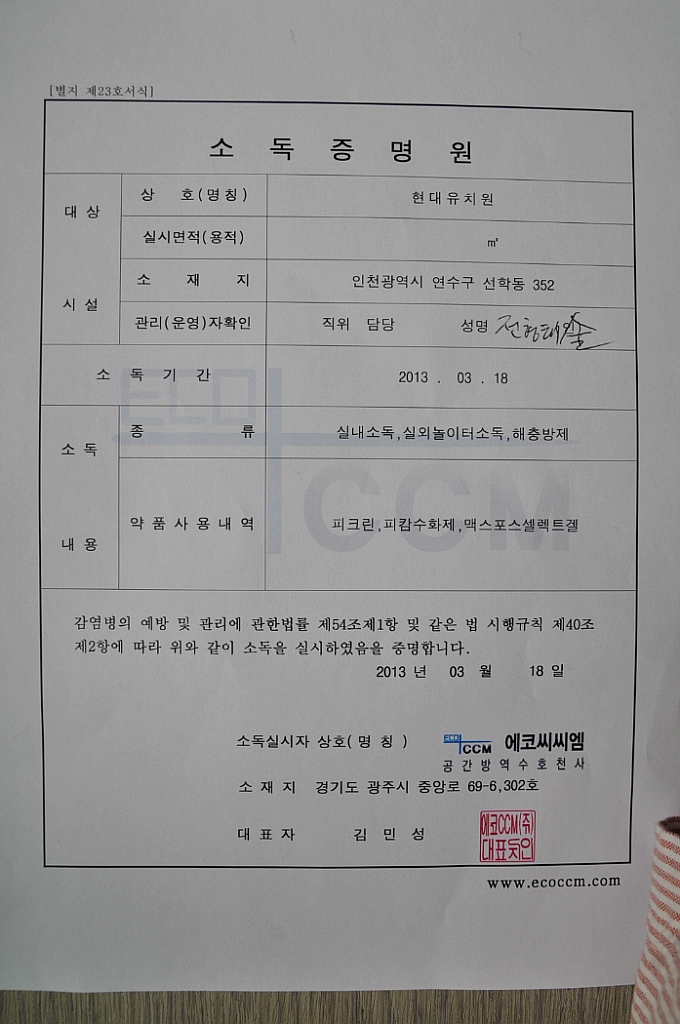 [별지 제23호서식]
소 독 증 명 원
대 상
시 설
상 호(명칭)
현대유치원
실시면적(용적)
㎡
소 재 지
인천광역시 연수구 선학동 352
관리(운영)자확인
직위 담당 성명
소 독 기 간
2013 . 03 . 18
소 독
내 용
종 류
실내소독,실외놀이터소독,해충방제
약 품 사 용 내 역
피크린,피캄수화제,맥스포스셀렉트겔
감염병의 예방 및 관리에 관한법률 제54조제1항 및 같은 법 시행규칙 제40조
제2항에 따라 위와 같이 소독을 실시하였음을 증명합니다.
2013 년 03 월 18 일
소독실시자 상호( 명 칭 )
CCM 에코씨씨엠
공 간 방 역 수 호 천 사
소 재 지 경기도 광주시 중앙로 69-6,302호
대 표 자 김 민 성
에코CCM(주)
대표
www.ecoccm.com
ECO
CCM